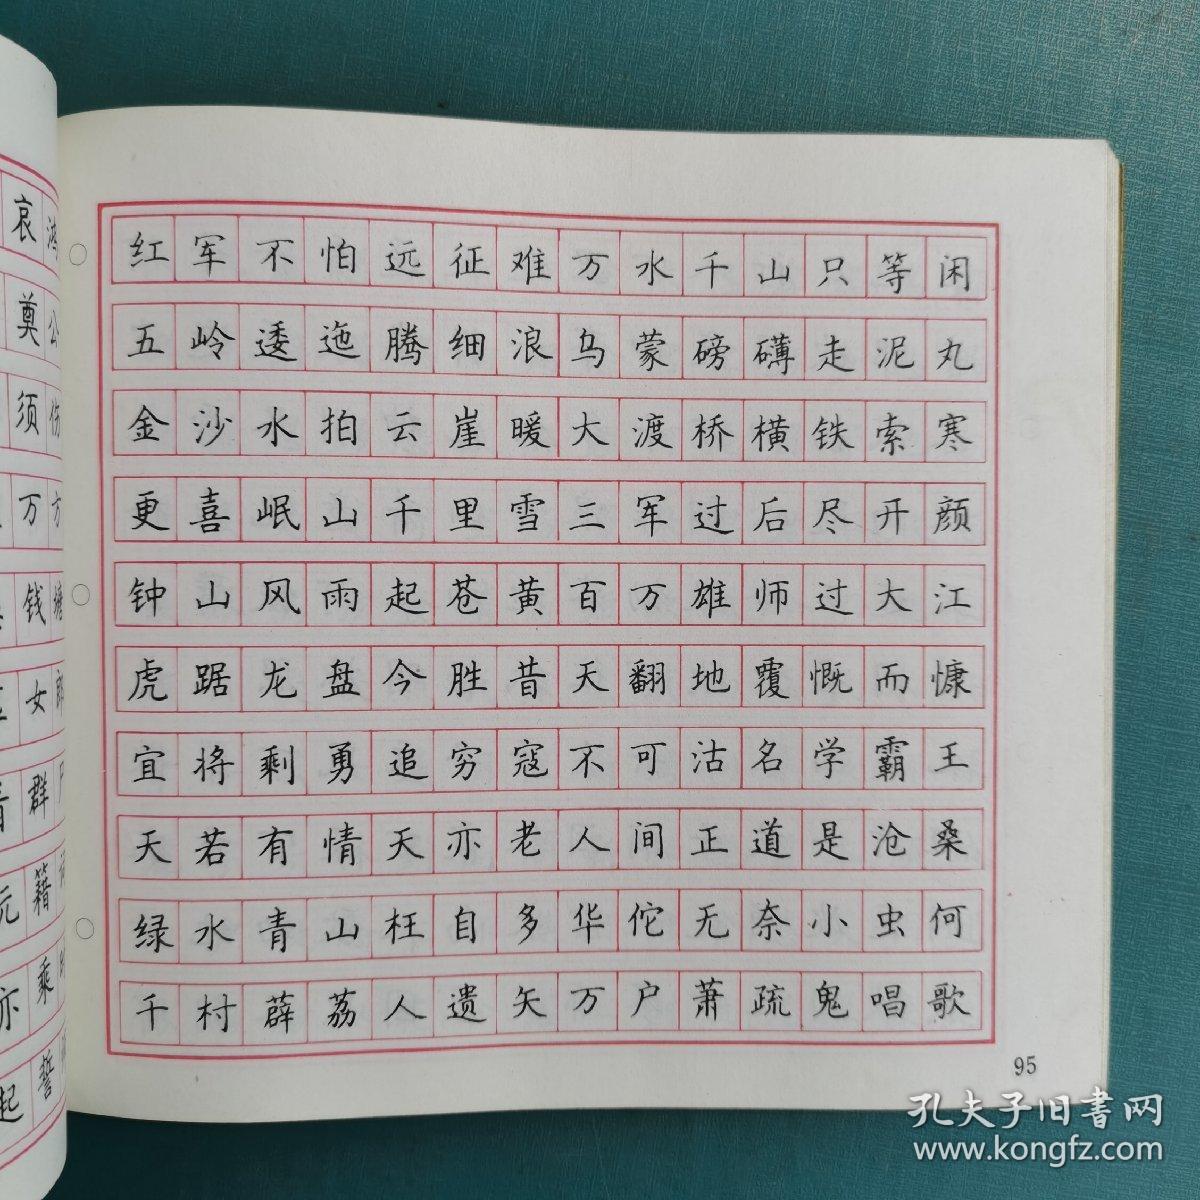 红军不怕远征难万水千山只等闲
五岭逶迤腾细浪乌蒙磅礴走泥丸
金沙水拍云崖暖大渡桥横铁索寒
更喜岷山千里雪三军过后尽开颜
钟山风雨起苍黄百万雄师过大江
虎踞龙盘今胜昔天翻地覆慨而慷
宜将剩勇追穷寇不可沽名学霸王
天若有情天亦老人间正道是沧桑
绿水青山枉自多华佗无奈小虫何
千村薜荔人遗矢万户萧疏鬼唱歌
95
哀鸿
奠公
须伤
万方
钱塘
女郎
群
籍
亦乘
起誓
孔夫子旧书网
www.kongfz.com